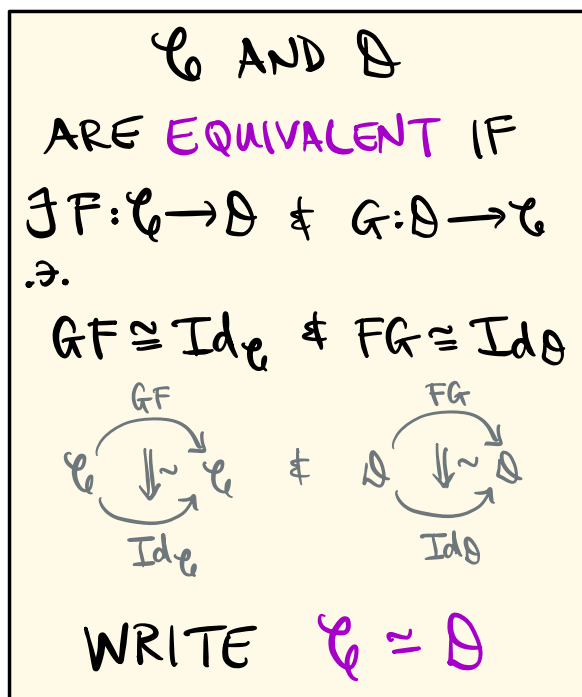 𝒞 AND 𝒟
ARE EQUIVALENT IF
∃ F:𝒞⟶𝒟 & G:𝒟⟶𝒞
.∋.
GF ≅ Id𝒞 & FG ≅ Id𝒟
GF FG
𝒞 ⇓~ 𝒞 & 𝒟 ⇓~ 𝒟
Id𝒞 Id𝒟
WRITE 𝒞 ≃ 𝒟